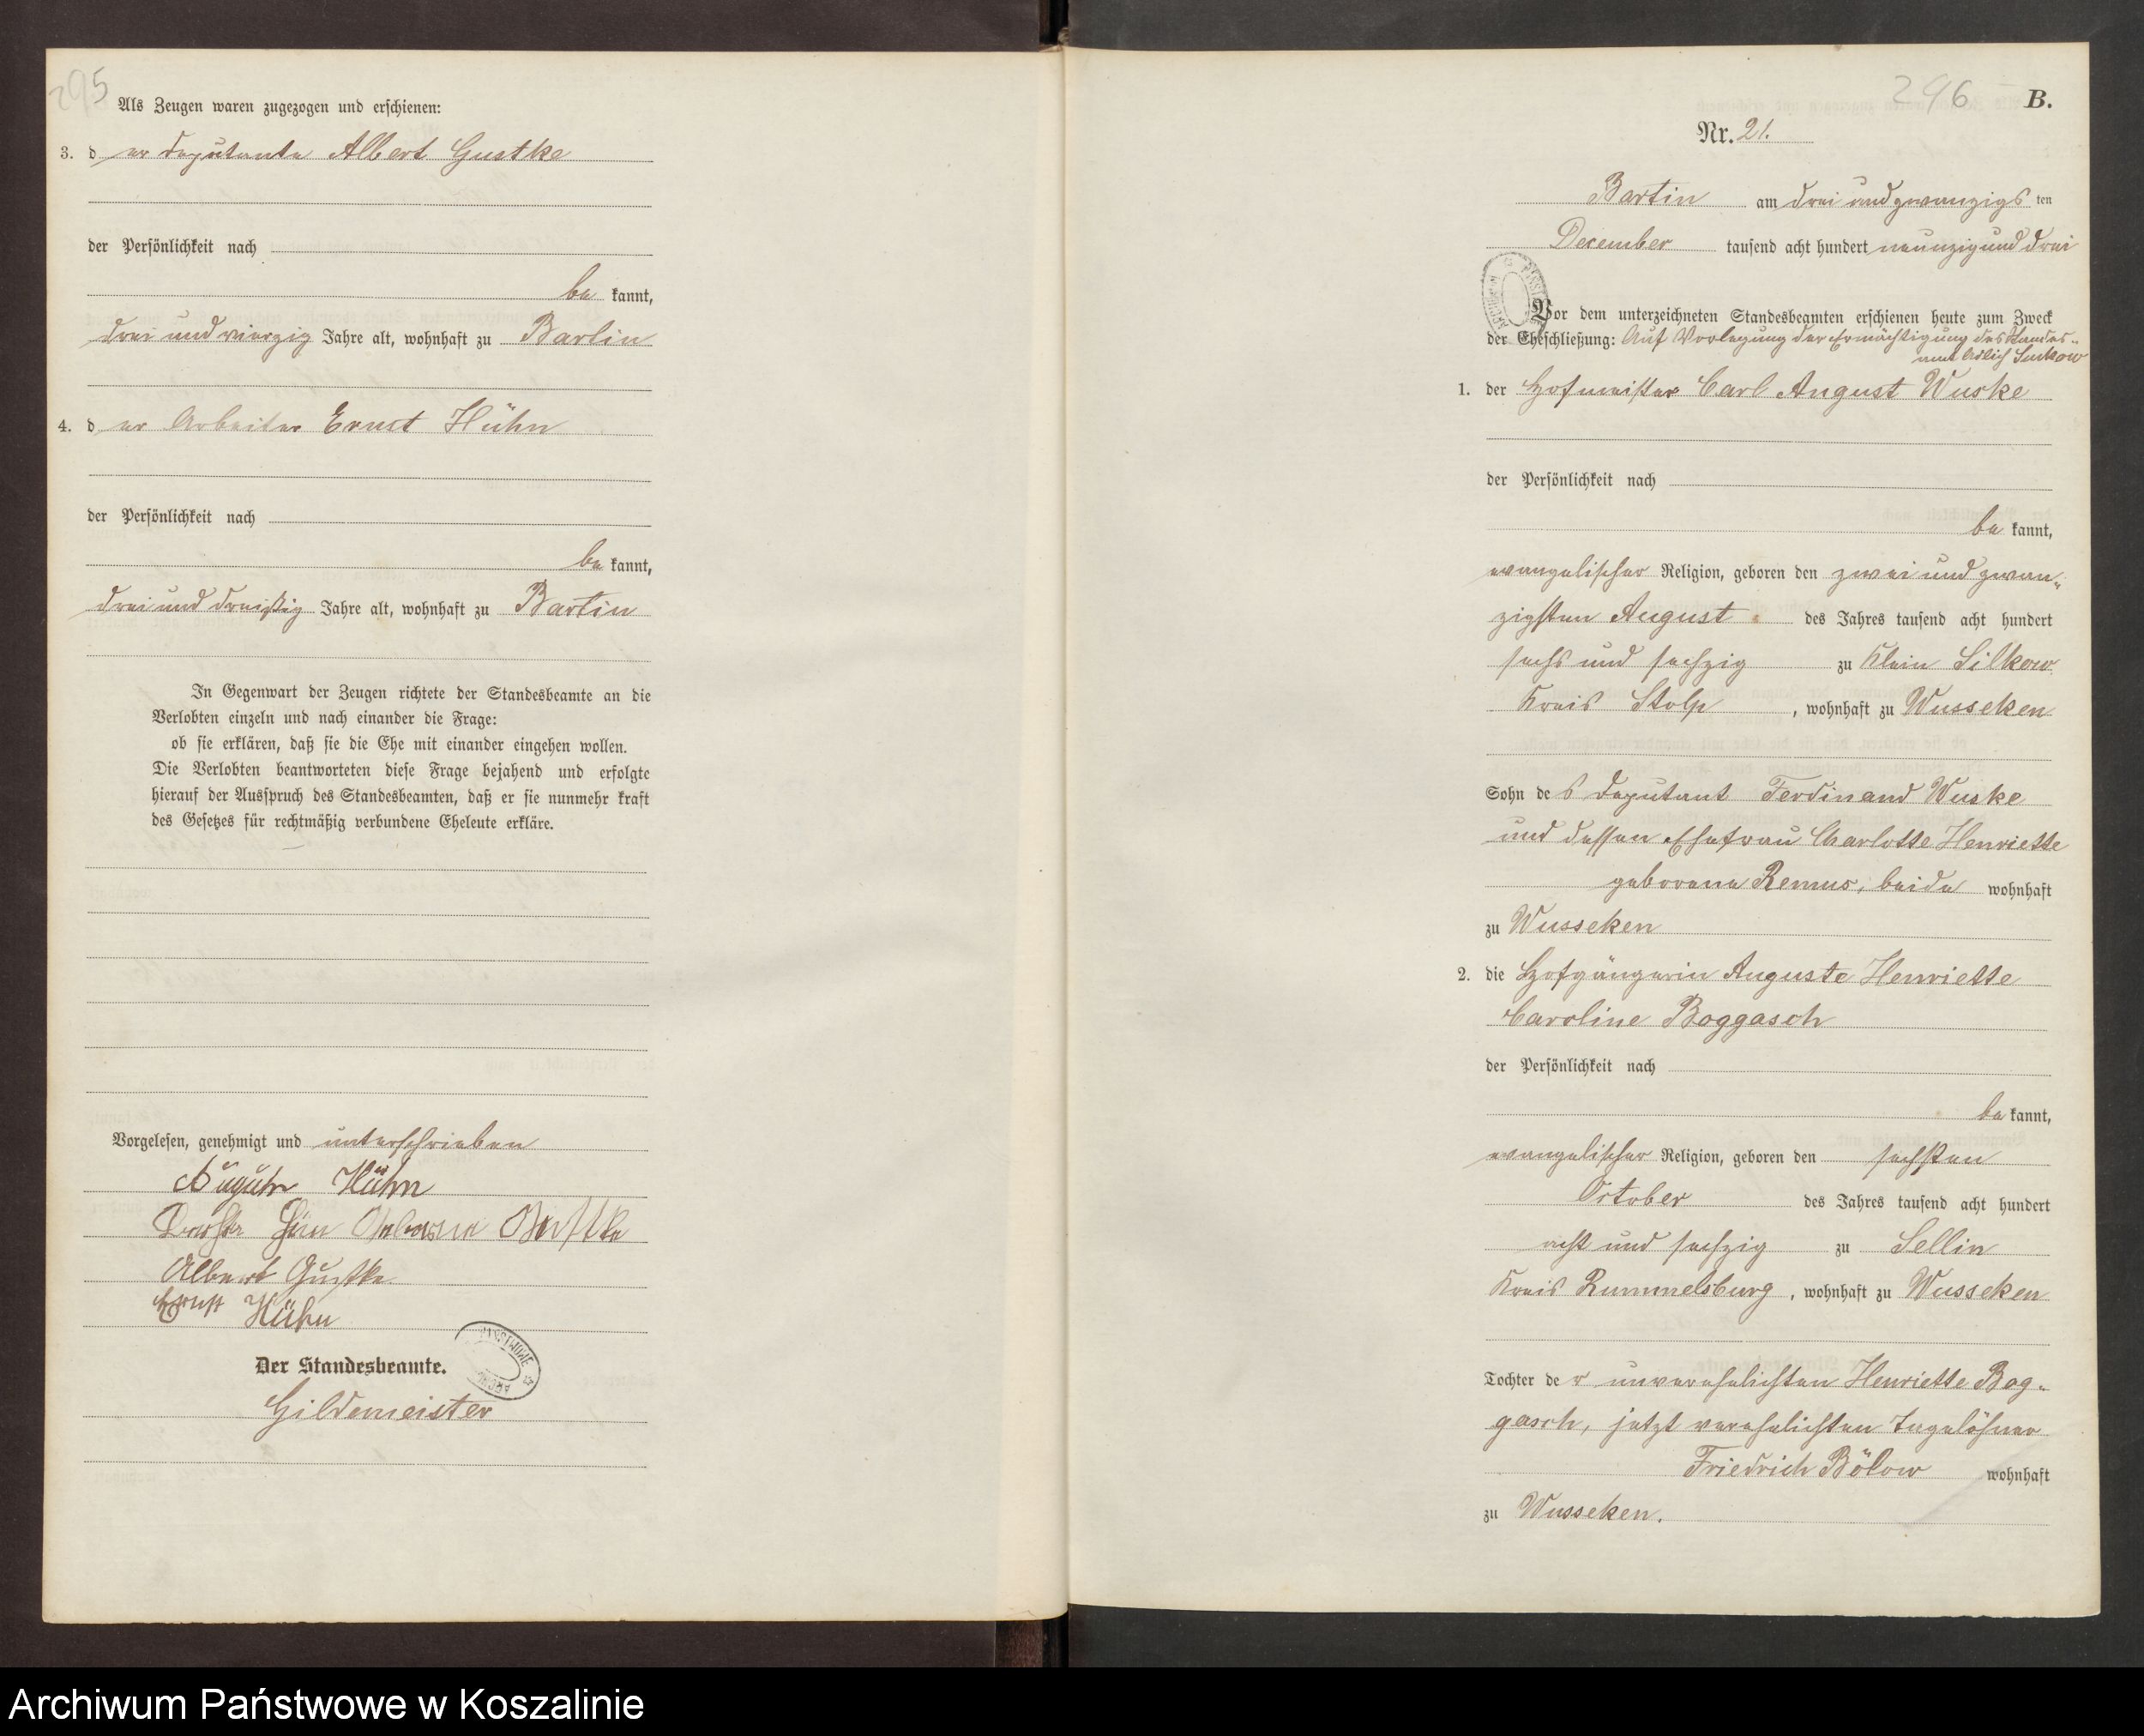 295
Als Zeugen waren zugezogen und erschienen:
3. d er Deputante Albert Gustke
der Persönlichkeit nach
be kannt,
drei und vierzig Jahre alt, wohnhaft zu Bartin
4. d er Arbeiter Ernst Hühn
der Persönlichkeit nach
be kannt,
drei und dreißig Jahre alt, wohnhaft zu Bartin
In Gegenwart der Zeugen richtete der Standesbeamte an die
Verlobten einzeln und nach einander die Frage:
ob sie erklären, daß sie die Ehe mit einander eingehen wollen.
Die Verlobten beantworteten diese Frage bejahend und erfolgte
hierauf der Ausspruch des Standesbeamten, daß er sie nunmehr kraft
des Gesetzes für rechtmäßig verbundene Eheleute erkläre.
Vorgelesen, genehmigt und unterschrieben
Hühn
Gustke
Albert Gustke
Ernst Hühn
Der Standesbeamte.
Gildemeister
296
B.
Nr. 21.
Bartin am drei und zwanzigs ten
December tausend acht hundert neunzig und drei
Vor dem unterzeichneten Standesbeamten erschienen heute zum Zweck
der Eheschließung: Auf Vorlegung der Ermächtigung des Standes-
amt Adlich Suckow
1. der Hofmeister Carl August Wuske
der Persönlichkeit nach
be kannt,
evangelischer Religion, geboren den zwei und zwan-
zigsten August des Jahres tausend acht hundert
sechs und sechzig zu Klein Silkow
Kreis Stolp, wohnhaft zu Wusseken
Sohn de s Deputant Ferdinand Wuske
und dessen Ehefrau Charlotte Henriette
geborene Remus, beide wohnhaft
zu Wusseken
2. die Hofgängerin Auguste Henriette
Caroline Boggasch
der Persönlichkeit nach
be kannt,
evangelischer Religion, geboren den sechsten
October des Jahres tausend acht hundert
acht und sechzig zu Sellin
Kreis Rummelsburg, wohnhaft zu Wusseken
Tochter de r unverehelichten Henriette Bog-
gasch, jetzt verehelichten Tagelöhner
Friedrich Bölow wohnhaft
zu Wusseken.
Archiwum Państwowe w Koszalinie